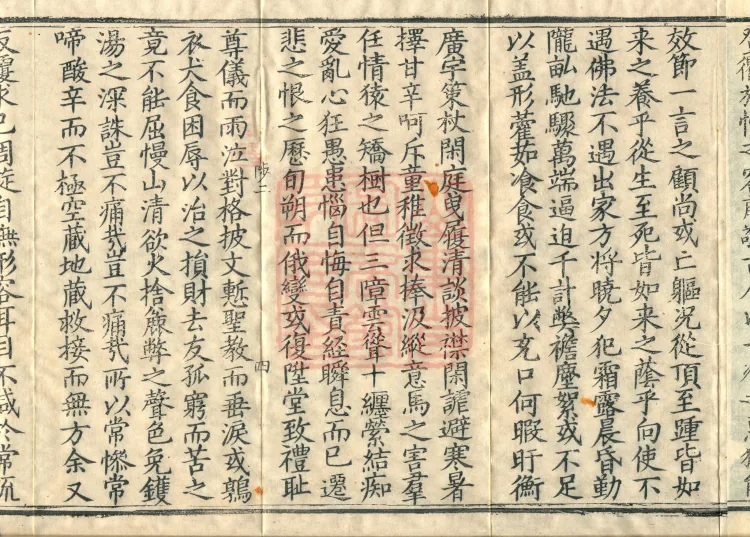 效節一言之顧尚或亡軀況從頂至踵皆如
來之養乎從生至死皆如來之蔭乎向使不
遇佛法不遇出家方將曉夕犯霜露晨昏勤
隴畝馳驟萬端逼迫千計弊襜塵絮或不足
以盖形藿茹飡食或不能以充口何暇盱衡
廣宇策杖閑庭曳履清談披襟閑謔避寒暑
擇甘辛呵斥童稚徵求捧汲縱意馬之害羣
任情猿之矯樹也但三障雲聳十纏縈結痴
愛亂心狂愚患惱自悔自責經瞬息而已遷
悲之恨之歷旬朔而俄變或復陞堂致禮恥
陟二 四
尊儀而雨泣對格披文慙聖教而垂淚或鶉
衣犬食困辱以治之損財去友孤窮而苦之
竟不能屈慢山清欲火捨麁弊之聲色免鑊
湯之深誅豈不痛哉豈不痛哉所以常慘常
啼酸辛而不極空藏地藏救接而無方余又
反覆求己周旋自無形容耳目不減於常流